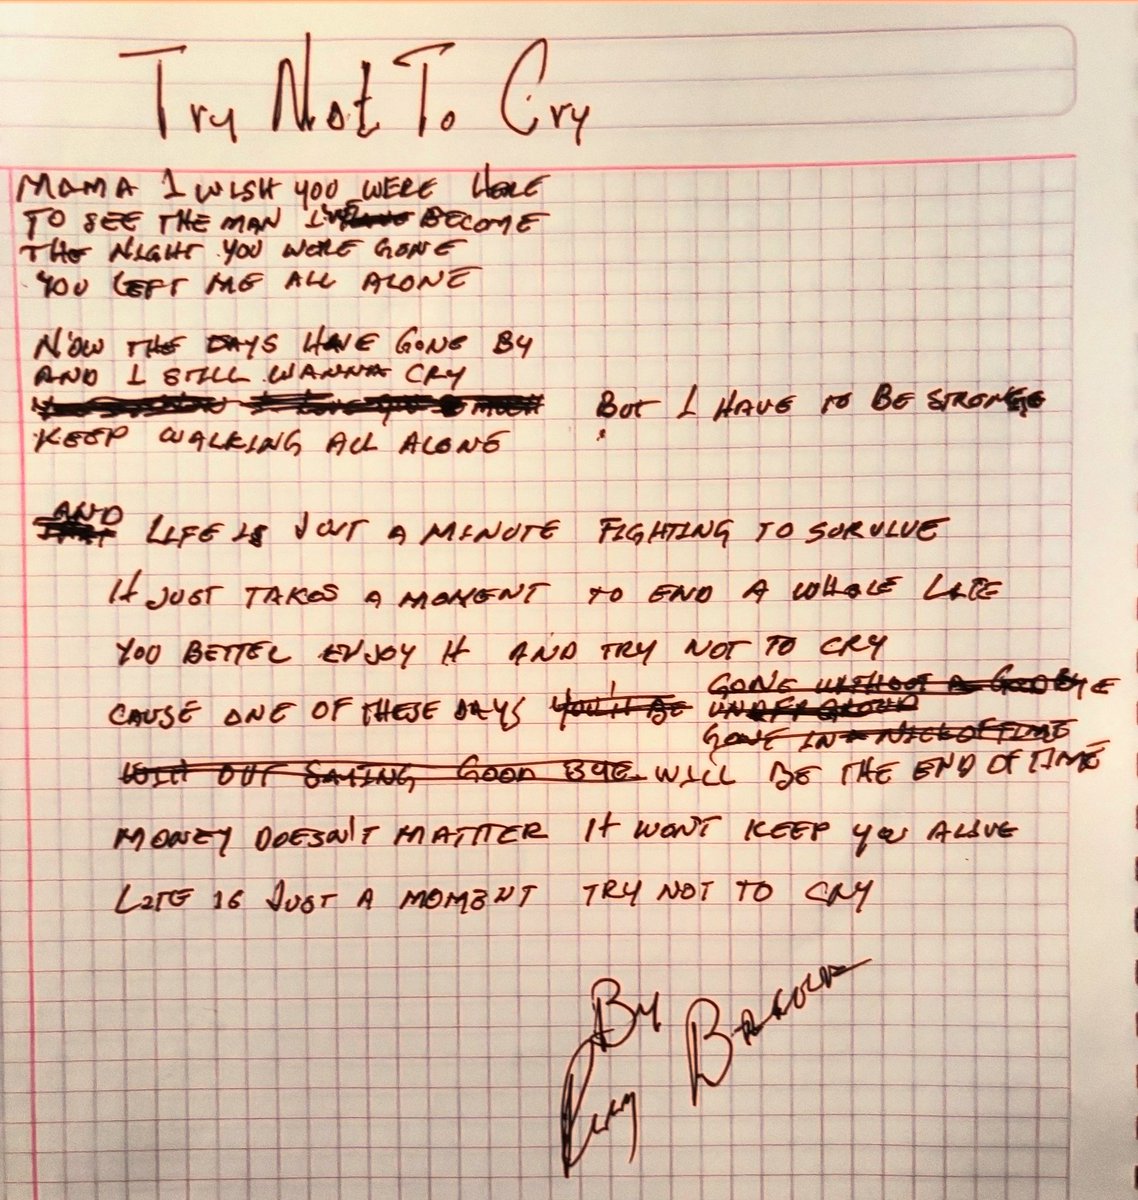 Try Not To Cry
MAMA I WISH YOU WERE HERE
TO SEE THE MAN I'VE BECOME
THE NIGHT YOU WERE GONE
YOU LEFT ME ALL ALONE
NOW THE DAYS HAVE GONE BY
AND I STILL WANNA CRY
BUT I HAVE TO BE STRONG
KEEP WALKING ALL ALONE
AND LIFE IS JUT A MINUTE FIGHTING TO SURVIVE
IT JUST TAKES A MOMENT TO END A WHOLE LIFE
YOU BETTER ENJOY IT AND TRY NOT TO CRY
GONE WITHOUT A GOODBYE
CAUSE ONE OF THESE DAYS YOU'll BE UNDERGROUND
GONE IN A NICK OF TIME
WITH OUT SAYING GOOD BYE WILL BE THE END OF TIME
MONEY DOESN'T MATTER IT WON'T KEEP YOU ALIVE
LIFE IS JUST A MOMENT TRY NOT TO CRY
By